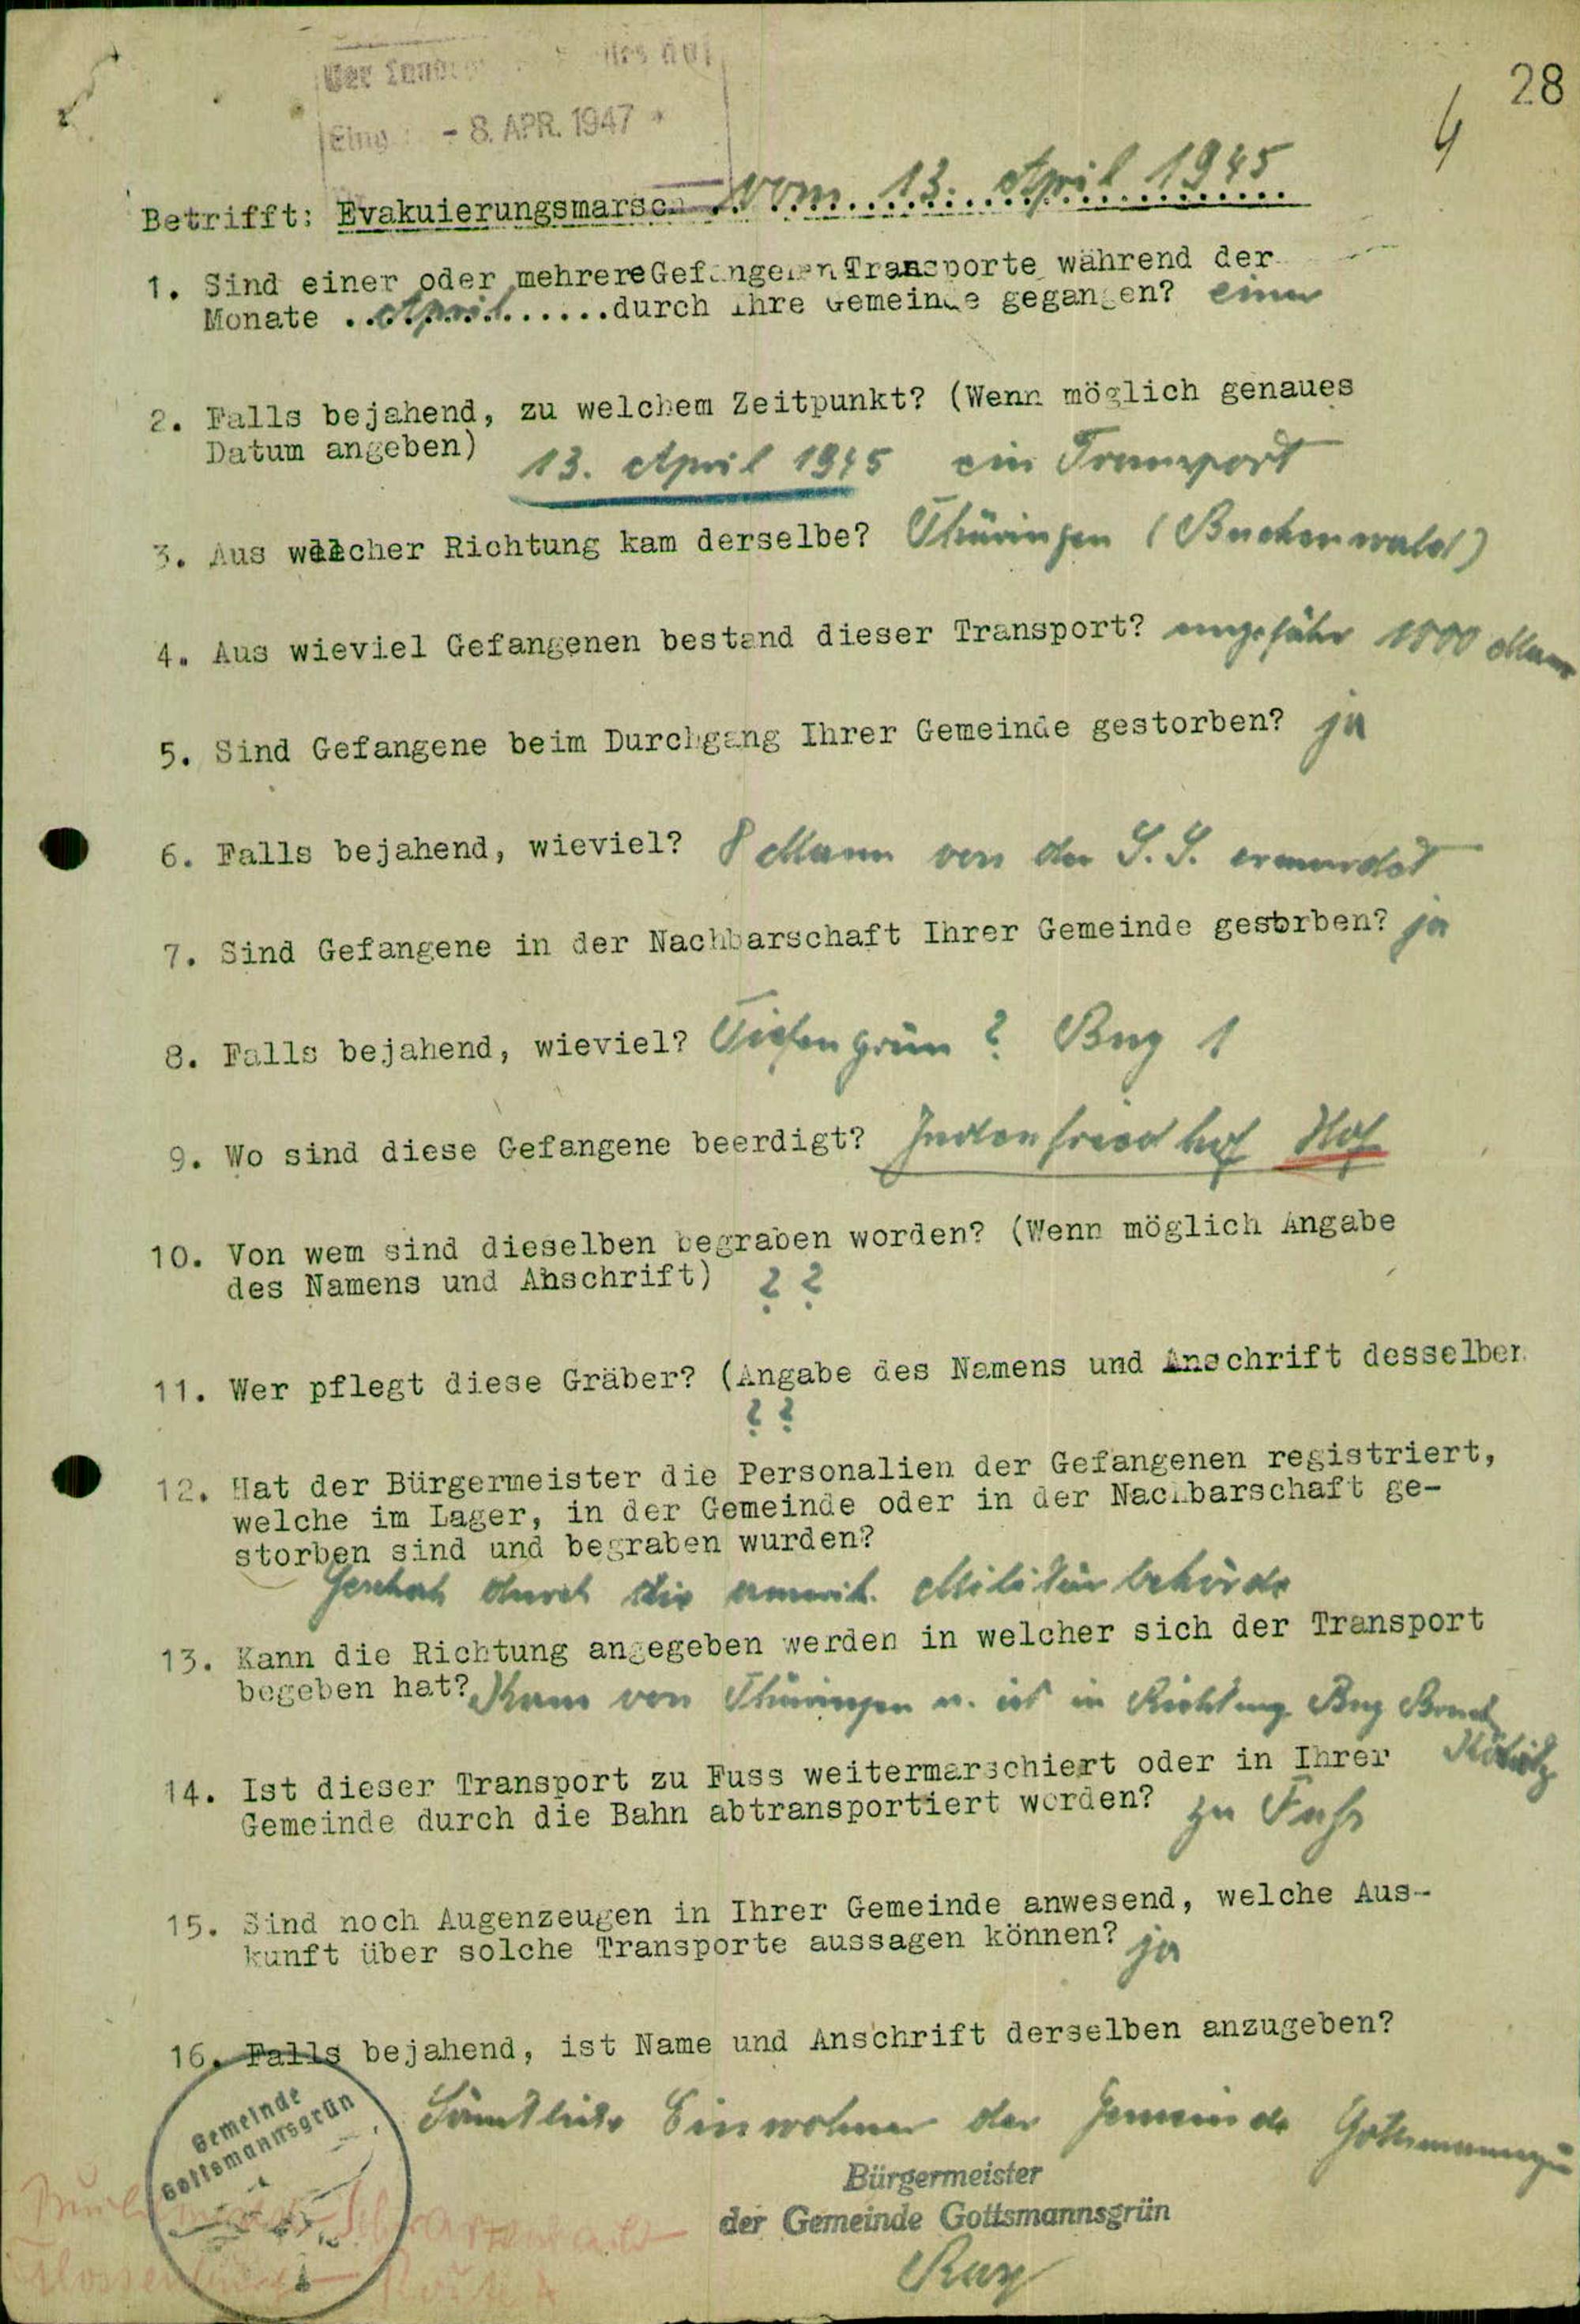 28
4
- 8. APR. 1947 *
Betrifft: Evakuierungsmarsch vom 13. April 1945
1. Sind einer oder mehrere Gefangenen Transporte während der
Monate ..April......durch Ihre Gemeinde gegangen? einer
2. Falls bejahend, zu welchem Zeitpunkt? (Wenn möglich genaues
Datum angeben) 13. April 1945 ein Transport
3. Aus welcher Richtung kam derselbe? Thüringen (Buchenwald)
4. Aus wieviel Gefangenen bestand dieser Transport? ungefähr 1000 Mann
5. Sind Gefangene beim Durchgang Ihrer Gemeinde gestorben? ja
6. Falls bejahend, wieviel? 8 Mann von der S.S. ermordet
7. Sind Gefangene in der Nachbarschaft Ihrer Gemeinde gestorben? ja
8. Falls bejahend, wieviel? Tiefengrün ? Bug 1
9. Wo sind diese Gefangene beerdigt? Judenfriedhof Hof
10. Von wem sind dieselben begraben worden? (Wenn möglich Angabe
des Namens und Anschrift) ? ?
11. Wer pflegt diese Gräber? (Angabe des Namens und Anschrift desselben
? ?
12. Hat der Bürgermeister die Personalien der Gefangenen registriert,
welche im Lager, in der Gemeinde oder in der Nachbarschaft ge-
storben sind und begraben wurden?
Geschah durch die amerik. Militärbehörde
13. Kann die Richtung angegeben werden in welcher sich der Transport
begeben hat? Kam von Thüringen u. ist in Richtung Bug
14. Ist dieser Transport zu Fuss weitermarschiert oder in Ihrer
Gemeinde durch die Bahn abtransportiert worden? zu Fuß
15. Sind noch Augenzeugen in Ihrer Gemeinde anwesend, welche Aus-
kunft über solche Transporte aussagen können? ja
16. Falls bejahend, ist Name und Anschrift derselben anzugeben?
Sämtliche Einwohner der Gemeinde Gottsmannsgrün
Gemeinde
Gottsmannsgrün
Bürgermeister
der Gemeinde Gottsmannsgrün